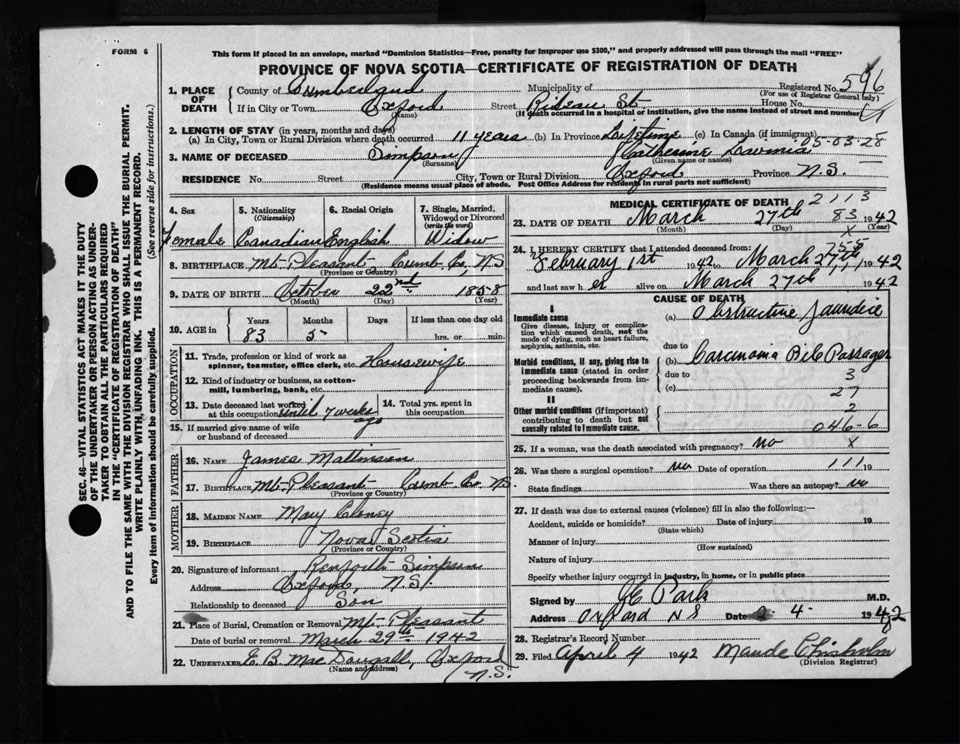 FORM 6
This form if placed in an envelope, marked "Dominion Statistics—Free, penalty for improper use $300," and properly addressed will pass through the mail "FREE"
PROVINCE OF NOVA SCOTIA—CERTIFICATE OF REGISTRATION OF DEATH
SEC. 46—VITAL STATISTICS ACT MAKES IT THE DUTY
OF THE UNDERTAKER OR PERSON ACTING AS UNDER-
TAKER TO OBTAIN ALL THE PARTICULARS REQUIRED
IN THE "CERTIFICATE OF REGISTRATION OF DEATH"
AND TO FILE THE SAME WITH THE DIVISION REGISTRAR WHO SHALL ISSUE THE BURIAL PERMIT.
WRITE PLAINLY WITH UNFADING INK. THIS IS A PERMANENT RECORD.
Every item of information should be carefully supplied. (See reverse side for instructions.)
1. PLACE OF DEATH County of Cumberland Municipality of Registered No. 596
(For use of Registrar General only)
If in City or Town Oxford Street Rideau St. House No.
(Name) (If death occurred in a hospital or institution, give the name instead of street and number)
2. LENGTH OF STAY (in years, months and days)
(a) In City, Town or Rural Division where death occurred 11 years (b) In Province Lifetime (c) In Canada (if immigrant)
05-03-28
3. NAME OF DECEASED Simpson Catherine Lavinia
(Surname) (Given name or names)
RESIDENCE No. Street City, Town or Rural Division Oxford Province N.S.
(Residence means usual place of abode. Post Office Address for residents in rural parts not sufficient)
4. Sex Female
5. Nationality (Citizenship) Canadian
6. Racial Origin English
7. Single, Married, Widowed or Divorced (write the word) Widow
8. BIRTHPLACE Mt. Pleasant Cumb. Co. N.S
(Province or Country)
9. DATE OF BIRTH October 22nd 1858
(Month) (Day) (Year)
10. AGE in Years Months Days If less than one day old
83 5 hrs. or min.
OCCUPATION
11. Trade, profession or kind of work as spinner, teamster, office clerk, etc. Housewife
12. Kind of industry or business, as cotton-mill, lumbering, bank, etc.
13. Date deceased last worked at this occupation until 7 weeks ago
14. Total yrs. spent in this occupation.
15. If married give name of wife or husband of deceased
FATHER
16. NAME James
17. BIRTHPLACE Mt. Pleasant Cumb Co. N.S.
(Province or Country)
MOTHER
18. MAIDEN NAME Mary
19. BIRTHPLACE Nova Scotia
(Province or Country)
20. Signature of informant Simpson
Address Oxford, N.S.
Relationship to deceased Son
21. Place of Burial, Cremation or Removal Mt. Pleasant
Date of burial or removal March 29th 1942
22. UNDERTAKER E. B. MacDougall, Oxford N.S.
(Name and address)
MEDICAL CERTIFICATE OF DEATH
2113
23. DATE OF DEATH March 27th 1942
(Month) (Day) (Year)
83
X
24. I HEREBY CERTIFY that I attended deceased from:
February 1st 1942 to March 27th, 1942
and last saw h er alive on March 27th 1942
CAUSE OF DEATH
I
Immediate cause
Give disease, injury or complication which caused death, not the mode of dying, such as heart failure, asphyxia, asthenia, etc.
(a) Obstructive Jaundice
due to
Morbid conditions, if any, giving rise to immediate cause (stated in order proceeding backwards from immediate cause).
(b) Carcinoma Bile Passages
due to 3
(c) 27
II
Other morbid conditions (if important) contributing to death but not causally related to immediate cause.
2
046-6
25. If a woman, was the death associated with pregnancy? no X
26. Was there a surgical operation? no Date of operation 111 19
State findings Was there an autopsy? no
27. If death was due to external causes (violence) fill in also the following:—
Accident, suicide or homicide? Date of injury 19
(State which)
Manner of injury
(How sustained)
Nature of injury
Specify whether injury occurred in industry, in home, or in public place
Signed by Park M.D.
Address Oxford NS Date 2 4 1942
28. Registrar's Record Number
29. Filed April 4 1942 Maude Chisholm
(Division Registrar)